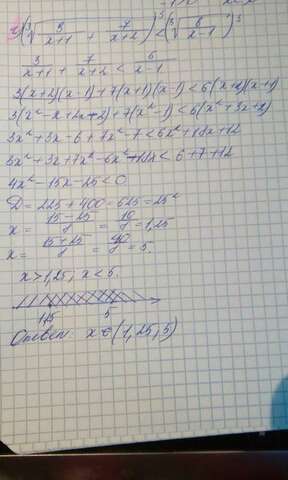 (∛(3/(x+1) + 7/(x+2)))³ < (∛(6/(x-1)))³
3/(x+1) + 7/(x+2) < 6/(x-1)
3(x+2)(x-1)+7(x+1)(x-1)<6(x+2)(x+1)
3(x²-x+2x-2)+7(x²-1)<6(x²+3x+2)
3x²+3x-6+7x²-7<6x²+18x+12
3x²+3x+7x²-6x²-18x<6+7+12
4x²-15x-25<0
D=225+400=625=25²
x= (15-25)/8 = 10/8 = 1,25
x= (15+25)/8 = 40/8 = 5.
x>1,25; x<5.
1,25 5
Ответ: x∈(1,25;5)